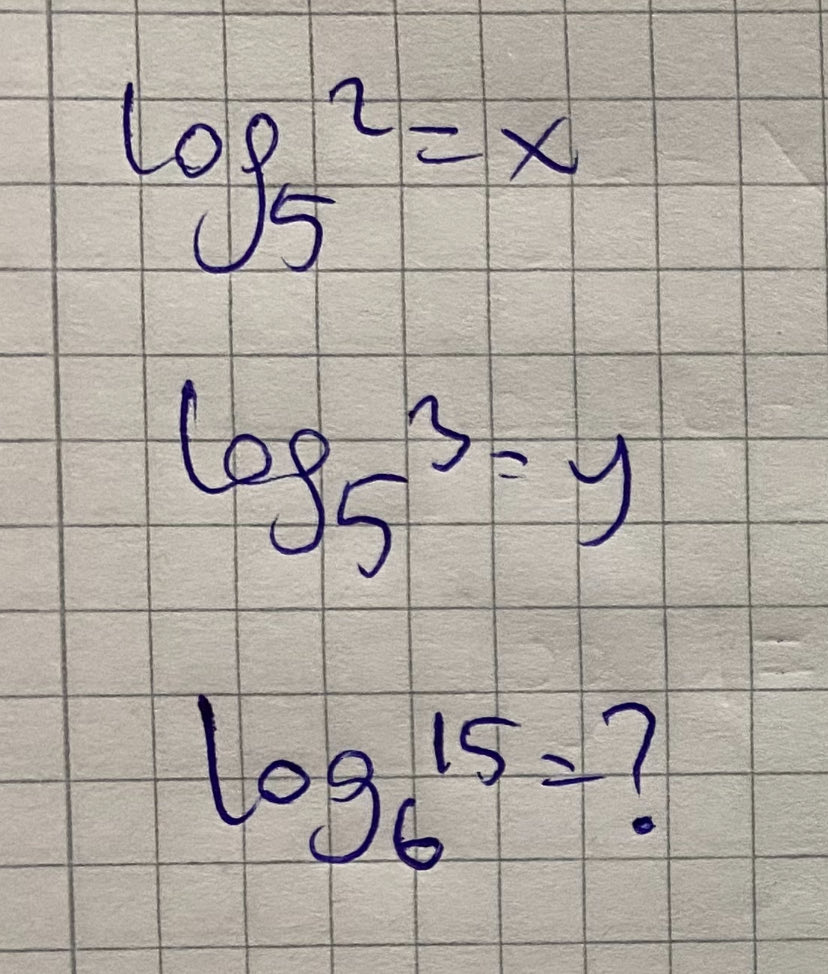 log₅² = x
log₅³ = y
log₆¹⁵ = ?